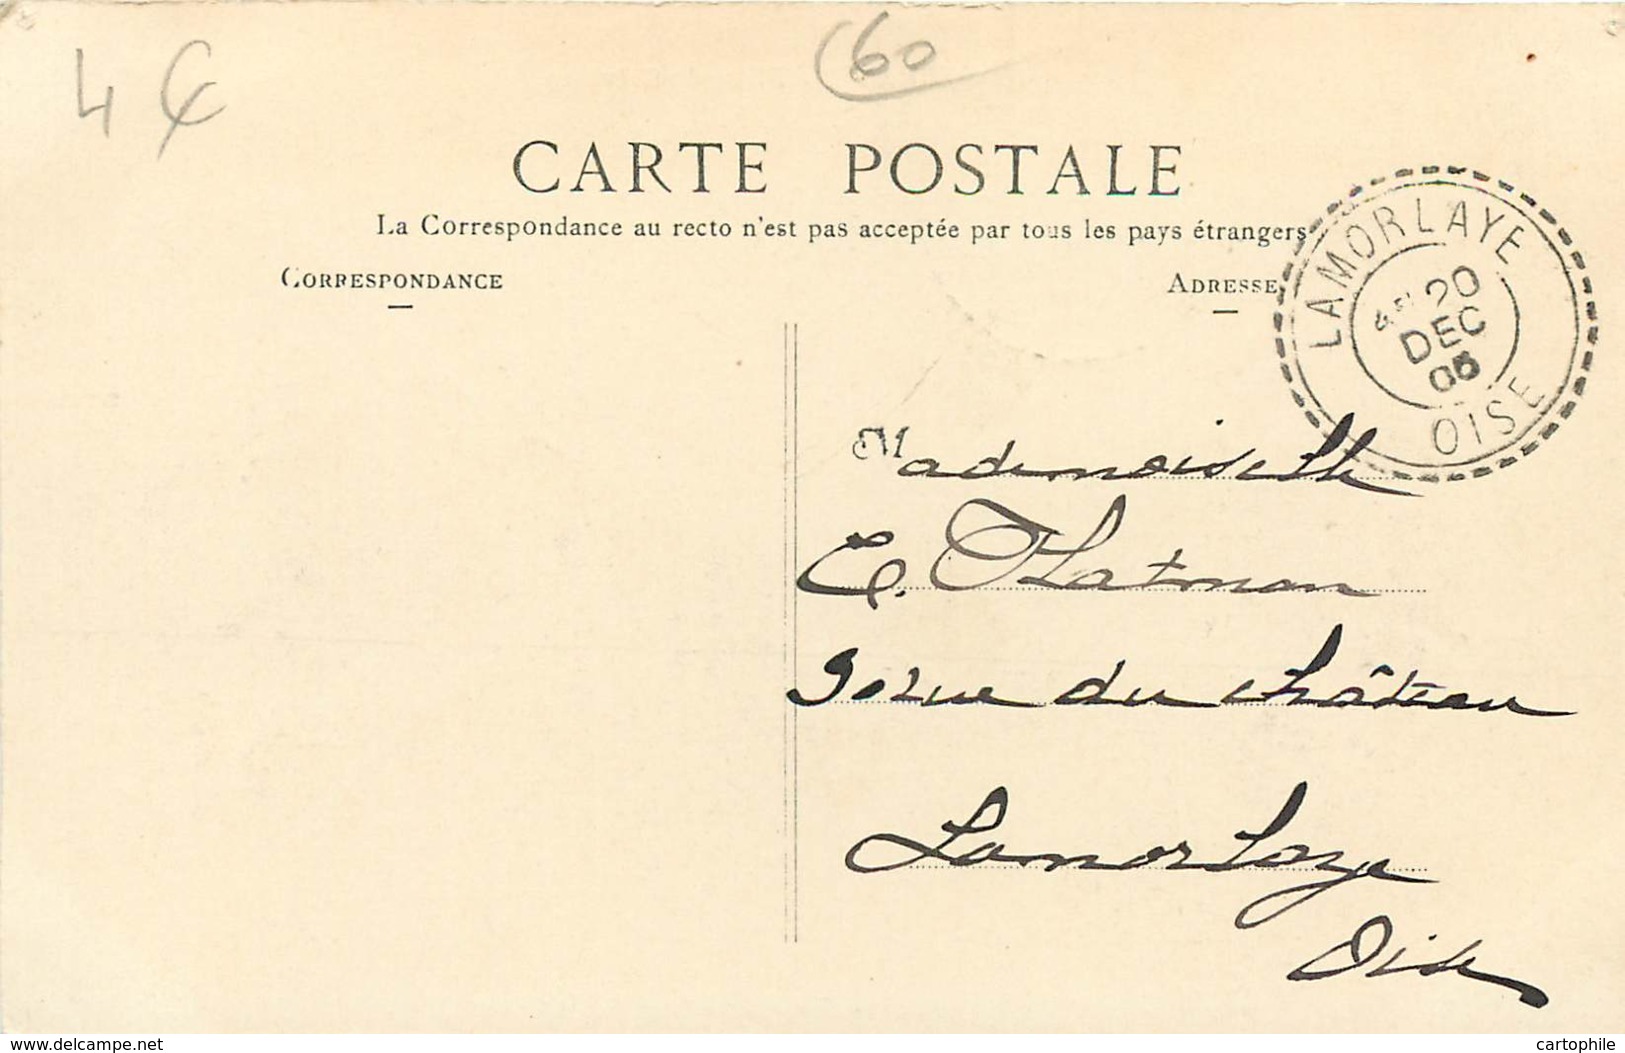 4 €
60
CARTE POSTALE
La Correspondance au recto n'est pas acceptée par tous les pays étrangers
CORRESPONDANCE
ADRESSE
LAMORLAYE
20
DEC
OISE
Mademoiselle
E.
du château
Lamorlaye
Oise
www.delcampe.net
cartophile